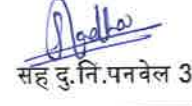 सह दु.नि.पनवेल 3